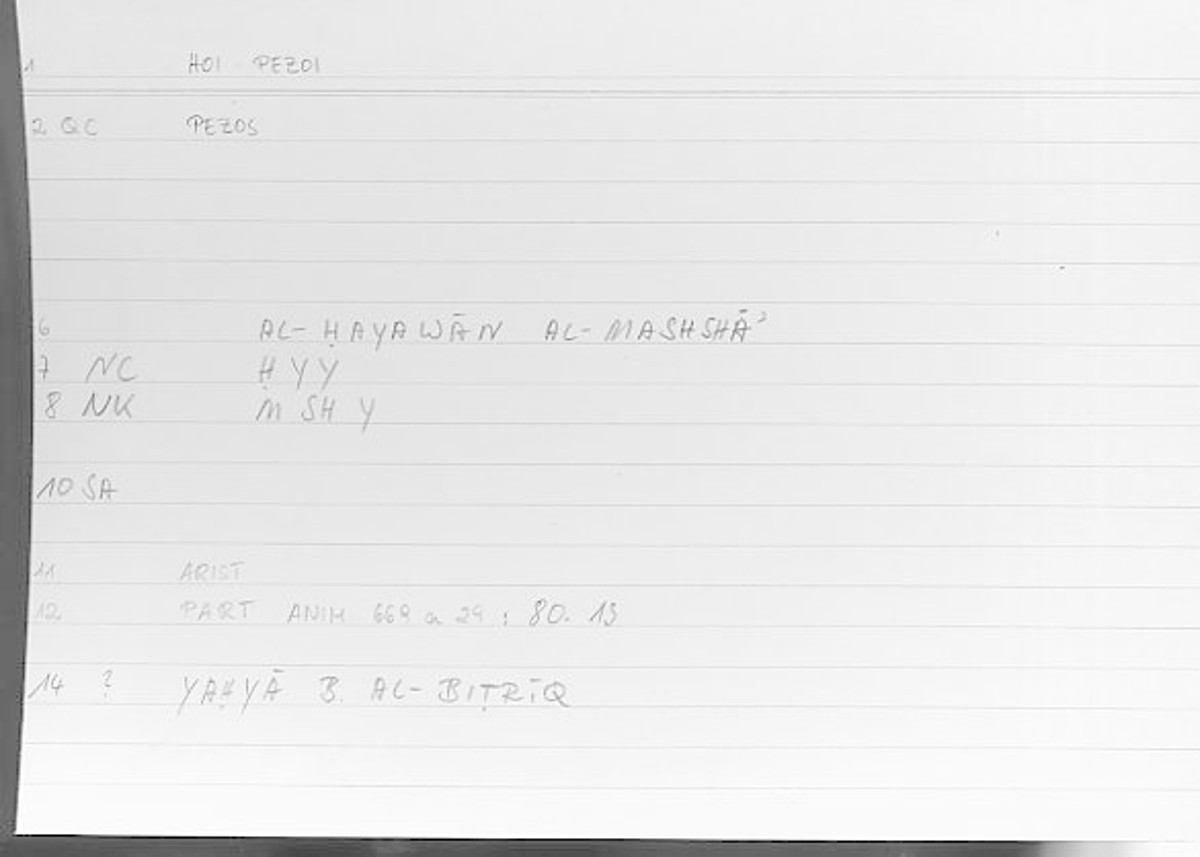 1 HOI PEZOI
2 QC PEZOS
6 AL-ḤAYAWĀN AL-MASHSHĀʾ
7 NC ḤYY
8 NK MSHY
10 SA
11 ARIST
12. PART ANIM 669 a 29 ; 80. 13
14 ? YAḤYĀ B. AL-BIṬRĪQ